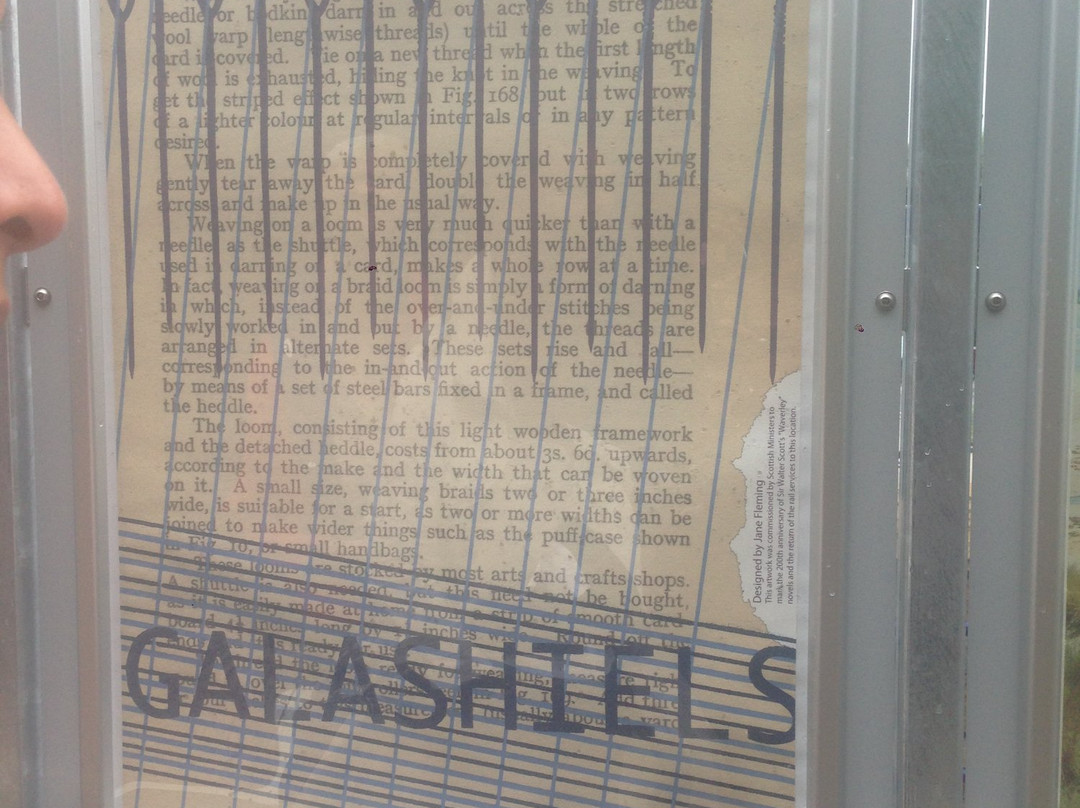 needle or bodkin darn in and out across the stretched
wool warp (lengthwise threads) until the whole of the
card is covered. Tie on a new thread when the first length
of wool is exhausted, hiding the knot in the weaving. To
get the striped effect shown in Fig. 168 put in two rows
of a lighter colour at regular intervals or in any pattern
desired.
When the warp is completely covered with weaving
gently tear away the card, double the weaving in half
across and make up in the usual way.
Weaving on a loom is very much quicker than with a
needle, as the shuttle, which corresponds with the needle
used in darning on a card, makes a whole row at a time.
In fact, weaving on a braid loom is simply a form of darning
in which, instead of the over-and-under stitches being
slowly worked in and out by a needle, the threads are
arranged in alternate sets. These sets rise and fall—
corresponding to the in-and-out action of the needle—
by means of a set of steel bars fixed in a frame, and called
the heddle.
The loom, consisting of this light wooden framework
and the detached heddle, costs from about 3s. 6d. upwards,
according to the make and the width that can be woven
on it. A small size, weaving braids two or three inches
wide, is suitable for a start, as two or more widths can be
joined to make wider things such as the puff-case shown
in Fig. 10, or small handbags.
These looms are stocked by most arts and crafts shops.
A shuttle is also needed, but this need not be bought,
as it is easily made at home from a strip of smooth card
board inches long by inches wide. Round off the
ends
GALASHIELS
Designed by Jane Fleming
This artwork was commissioned by Scottish Ministers to
mark the 200th anniversary of Sir Walter Scott's "Waverley"
novels and the return of the rail services to this location.